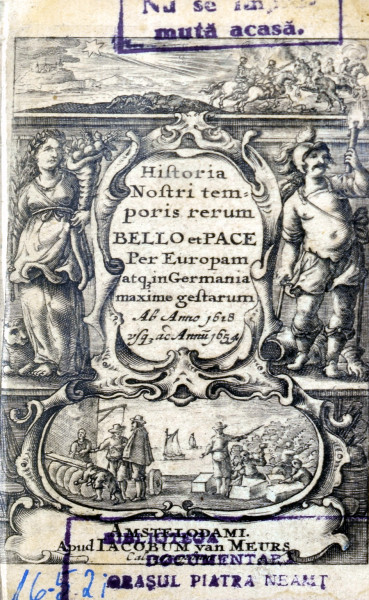 Nu se
mută acasă.
Historia
Nostri tem-
poris rerum
BELLO et PACE
Per Europam
atq₃ in Germania
maxime gestarum
Ab Anno 1618
usq₃ ad Annũ 1654
AMSTELODAMI.
Apud IACOBUM van MEURS
BIBLIOTECA
DOCUMENTARĂ
ORAȘUL PIATRA NEAMȚ
16-5.21